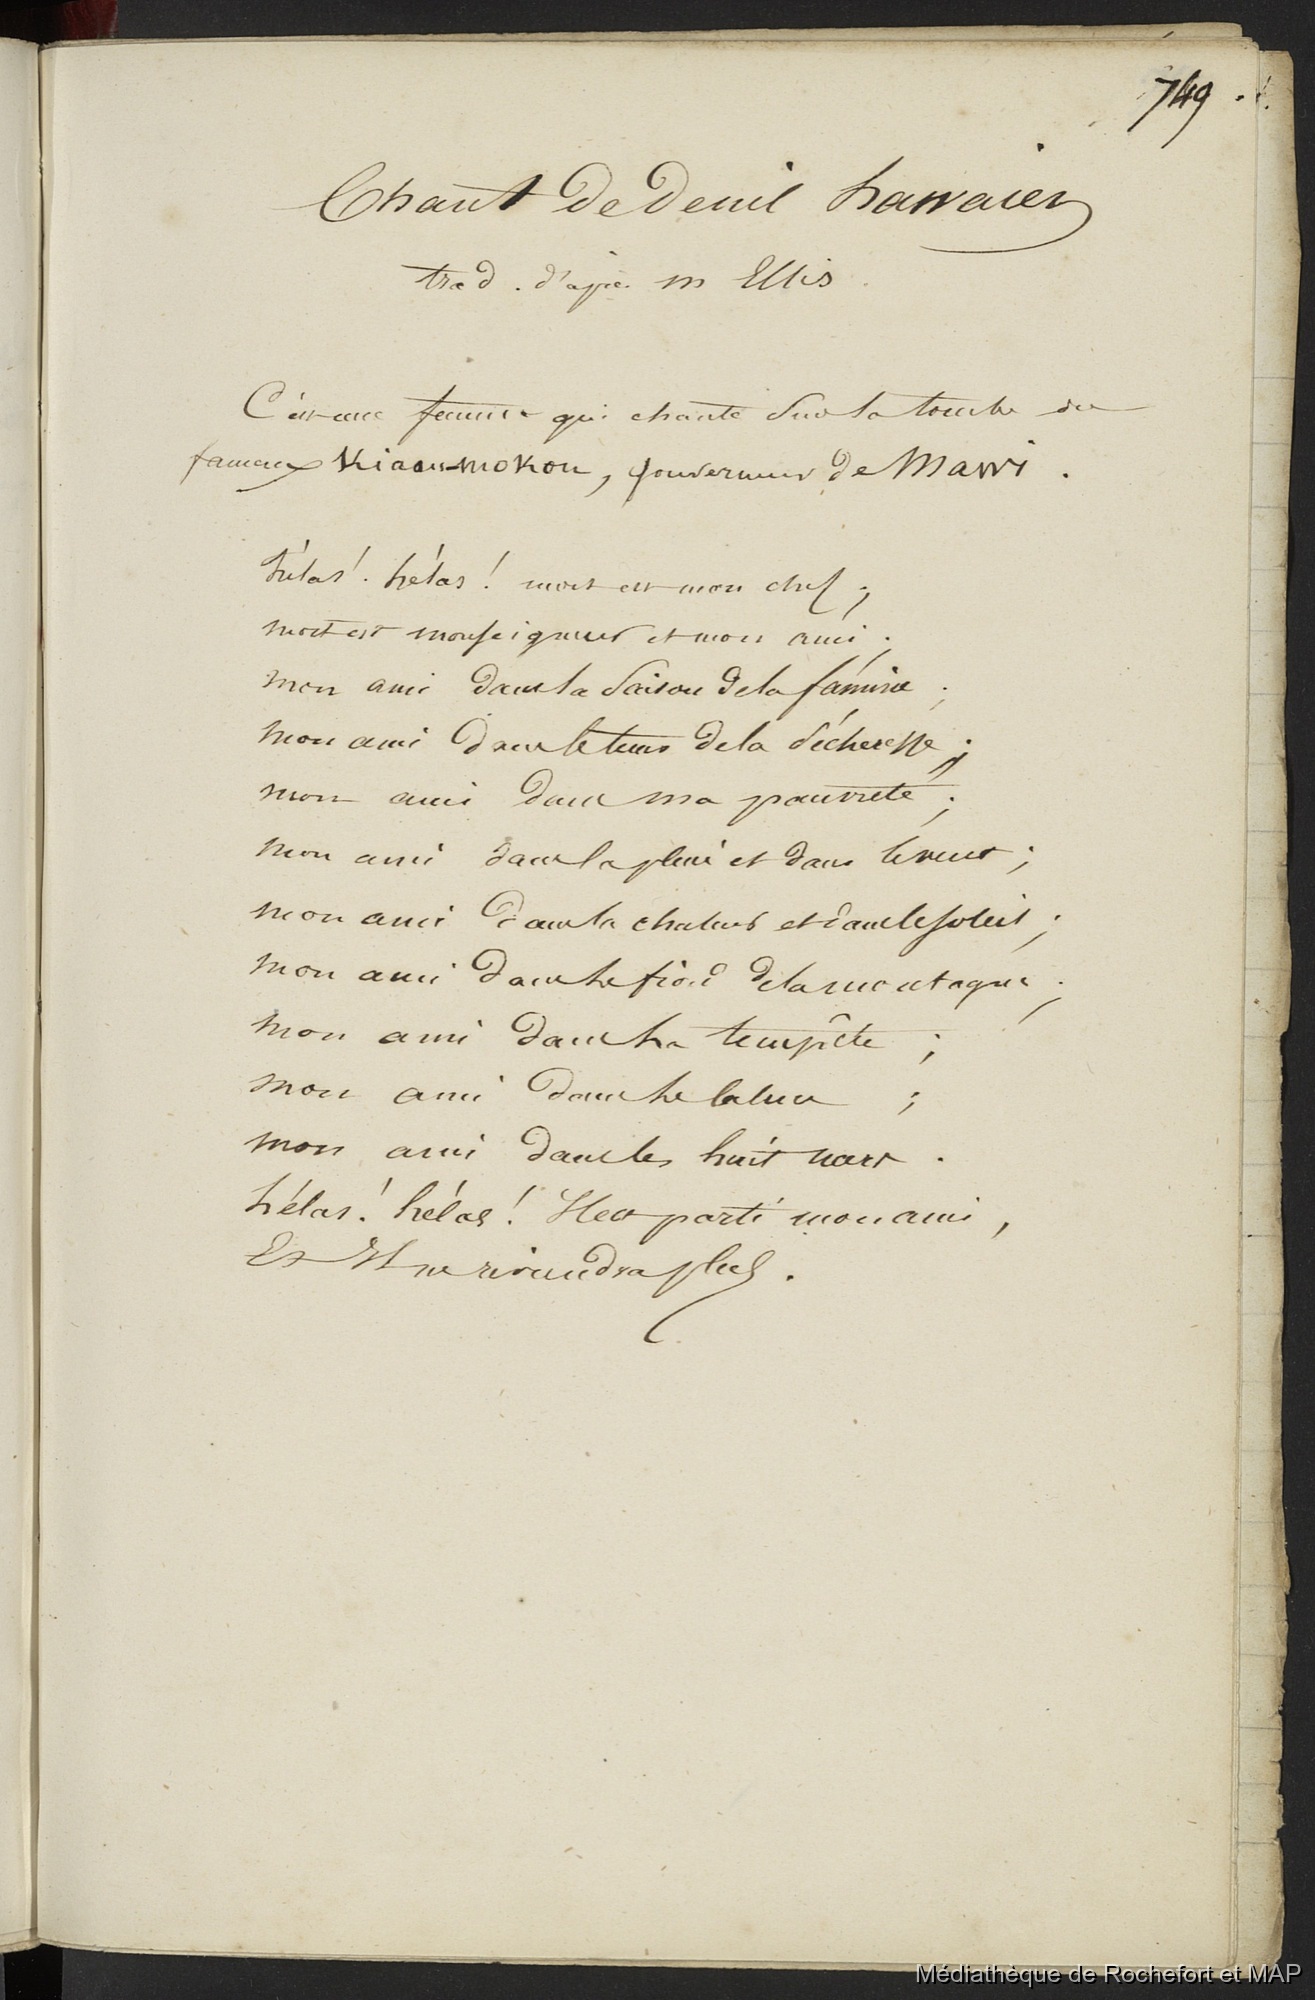 749.
Chant de deuil hawaien
trad. d'après m Ellis.
C'est une femme qui chante sur la tombe du
fameux Kiaau-mokou, gouverneur de Mawi.
hélas! hélas! mort est mon chef;
mort est monseigneur et mon ami;
mon ami dans la saison de la famine;
mon ami dans le tems de la sécheresse;
mon ami dans ma pauvreté;
mon ami dans la pluie et dans le vent;
mon ami dans la chaleur et dans le soleil;
mon ami dans le froid de la montagne;
mon ami dans la tempête;
mon ami dans le calme;
mon ami dans les huit mers.
hélas! hélas! Il est parti mon ami,
Et Il ne reviendra plus.
Médiathèque de Rochefort et MAP